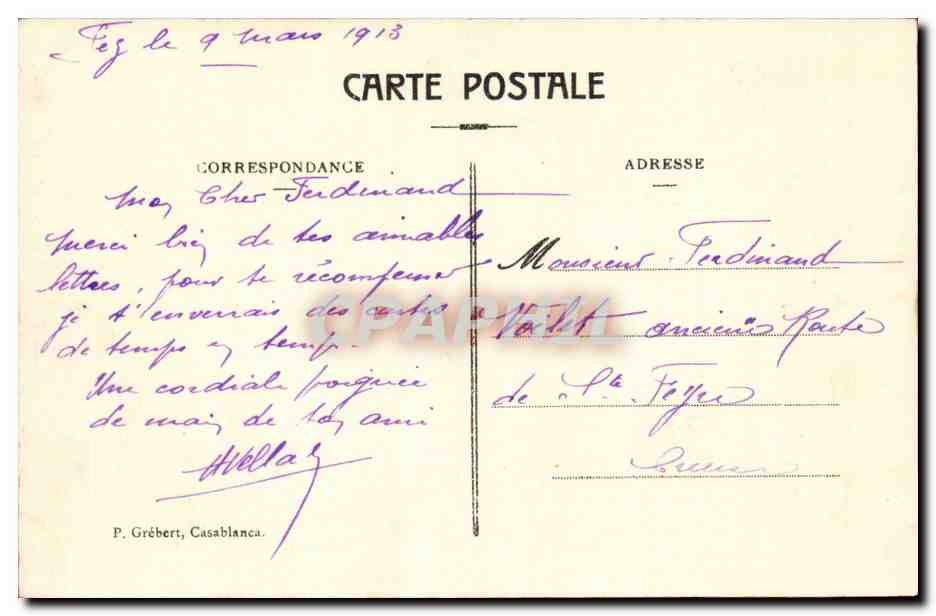 Fez le 9 mars 1913
CARTE POSTALE
CORRESPONDANCE
Mon Cher Ferdinand
Merci bien de tes aimables
lettres, pour te récompenser
je t'enverrais des cartes
de temps en temps.
Une cordiale poignée
de main de ton ami
P. Grébert, Casablanca.
ADRESSE
Monsieur Ferdinand
Valet ancienne Route
de Ste Feyre
Creuse
CPAPHIL